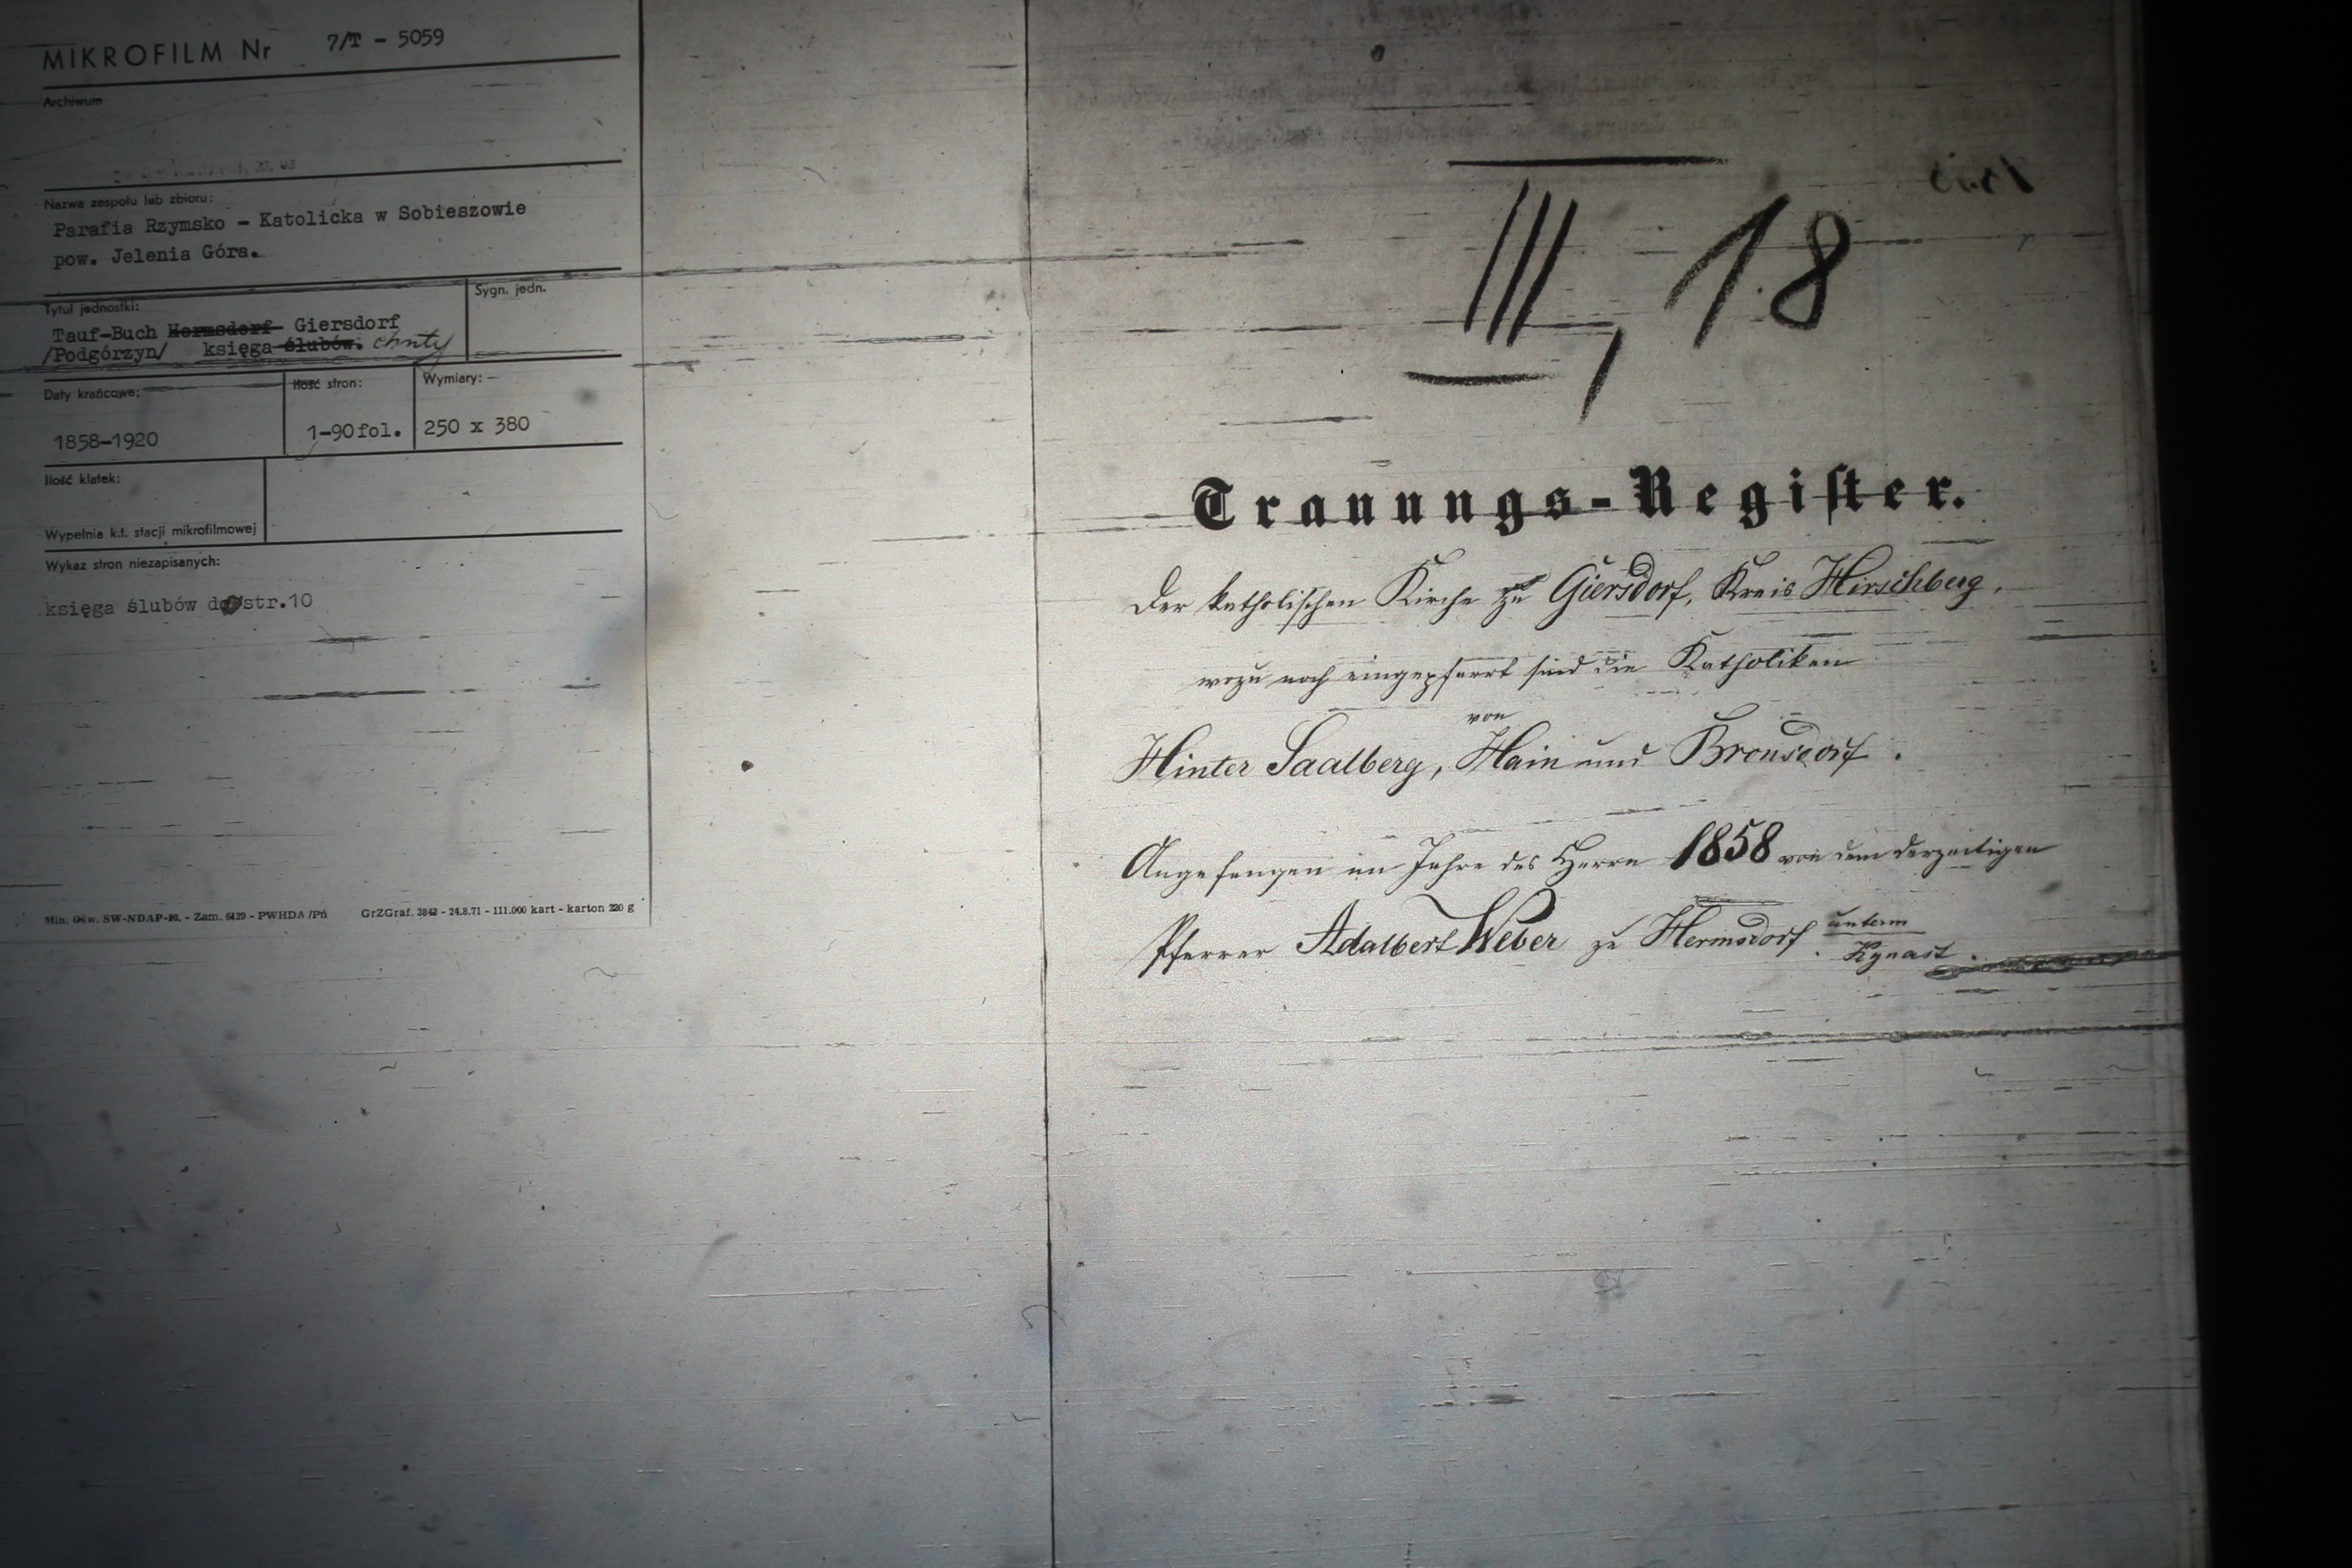 MIKROFILM Nr 7/T - 5059
Archiwum
Nazwa zespołu lub zbioru:
Parafia Rzymsko - Katolicka w Sobieszowie
pow. Jelenia Góra.
Tytuł jednostki:
Sygn. jedn.
Tauf-Buch Hermsdorf Giersdorf
/Podgórzyn/ księga ślubów. chrzty
Daty krańcowe:
Ilość stron:
Wymiary:
1858-1920
1-90 fol.
250 x 380
Ilość klatek:
Wypełnia k.t. stacji mikrofilmowej
Wykaz stron niezapisanych:
księga ślubów do str.10
Min. Ośw. SW-NDAP-10. - Zam. 6129 - PWHDA /Pń GrZGraf. 3842 - 24.8.71 - 111.000 kart - karton 220 g
III, 18
Trauungs-Regiſter.
Der katholischen Kirche zu Giersdorf, Kreis Hirschberg,
wozu noch eingepfarrt sind die Katholiken
von
Hinter Saalberg, Hain und Bronsdorf.
Angefangen im Jahre des Herrn 1858 von dem derzeitigen
Pfarrer Adalbert Weber zu Hermsdorf unterm
Kynast.